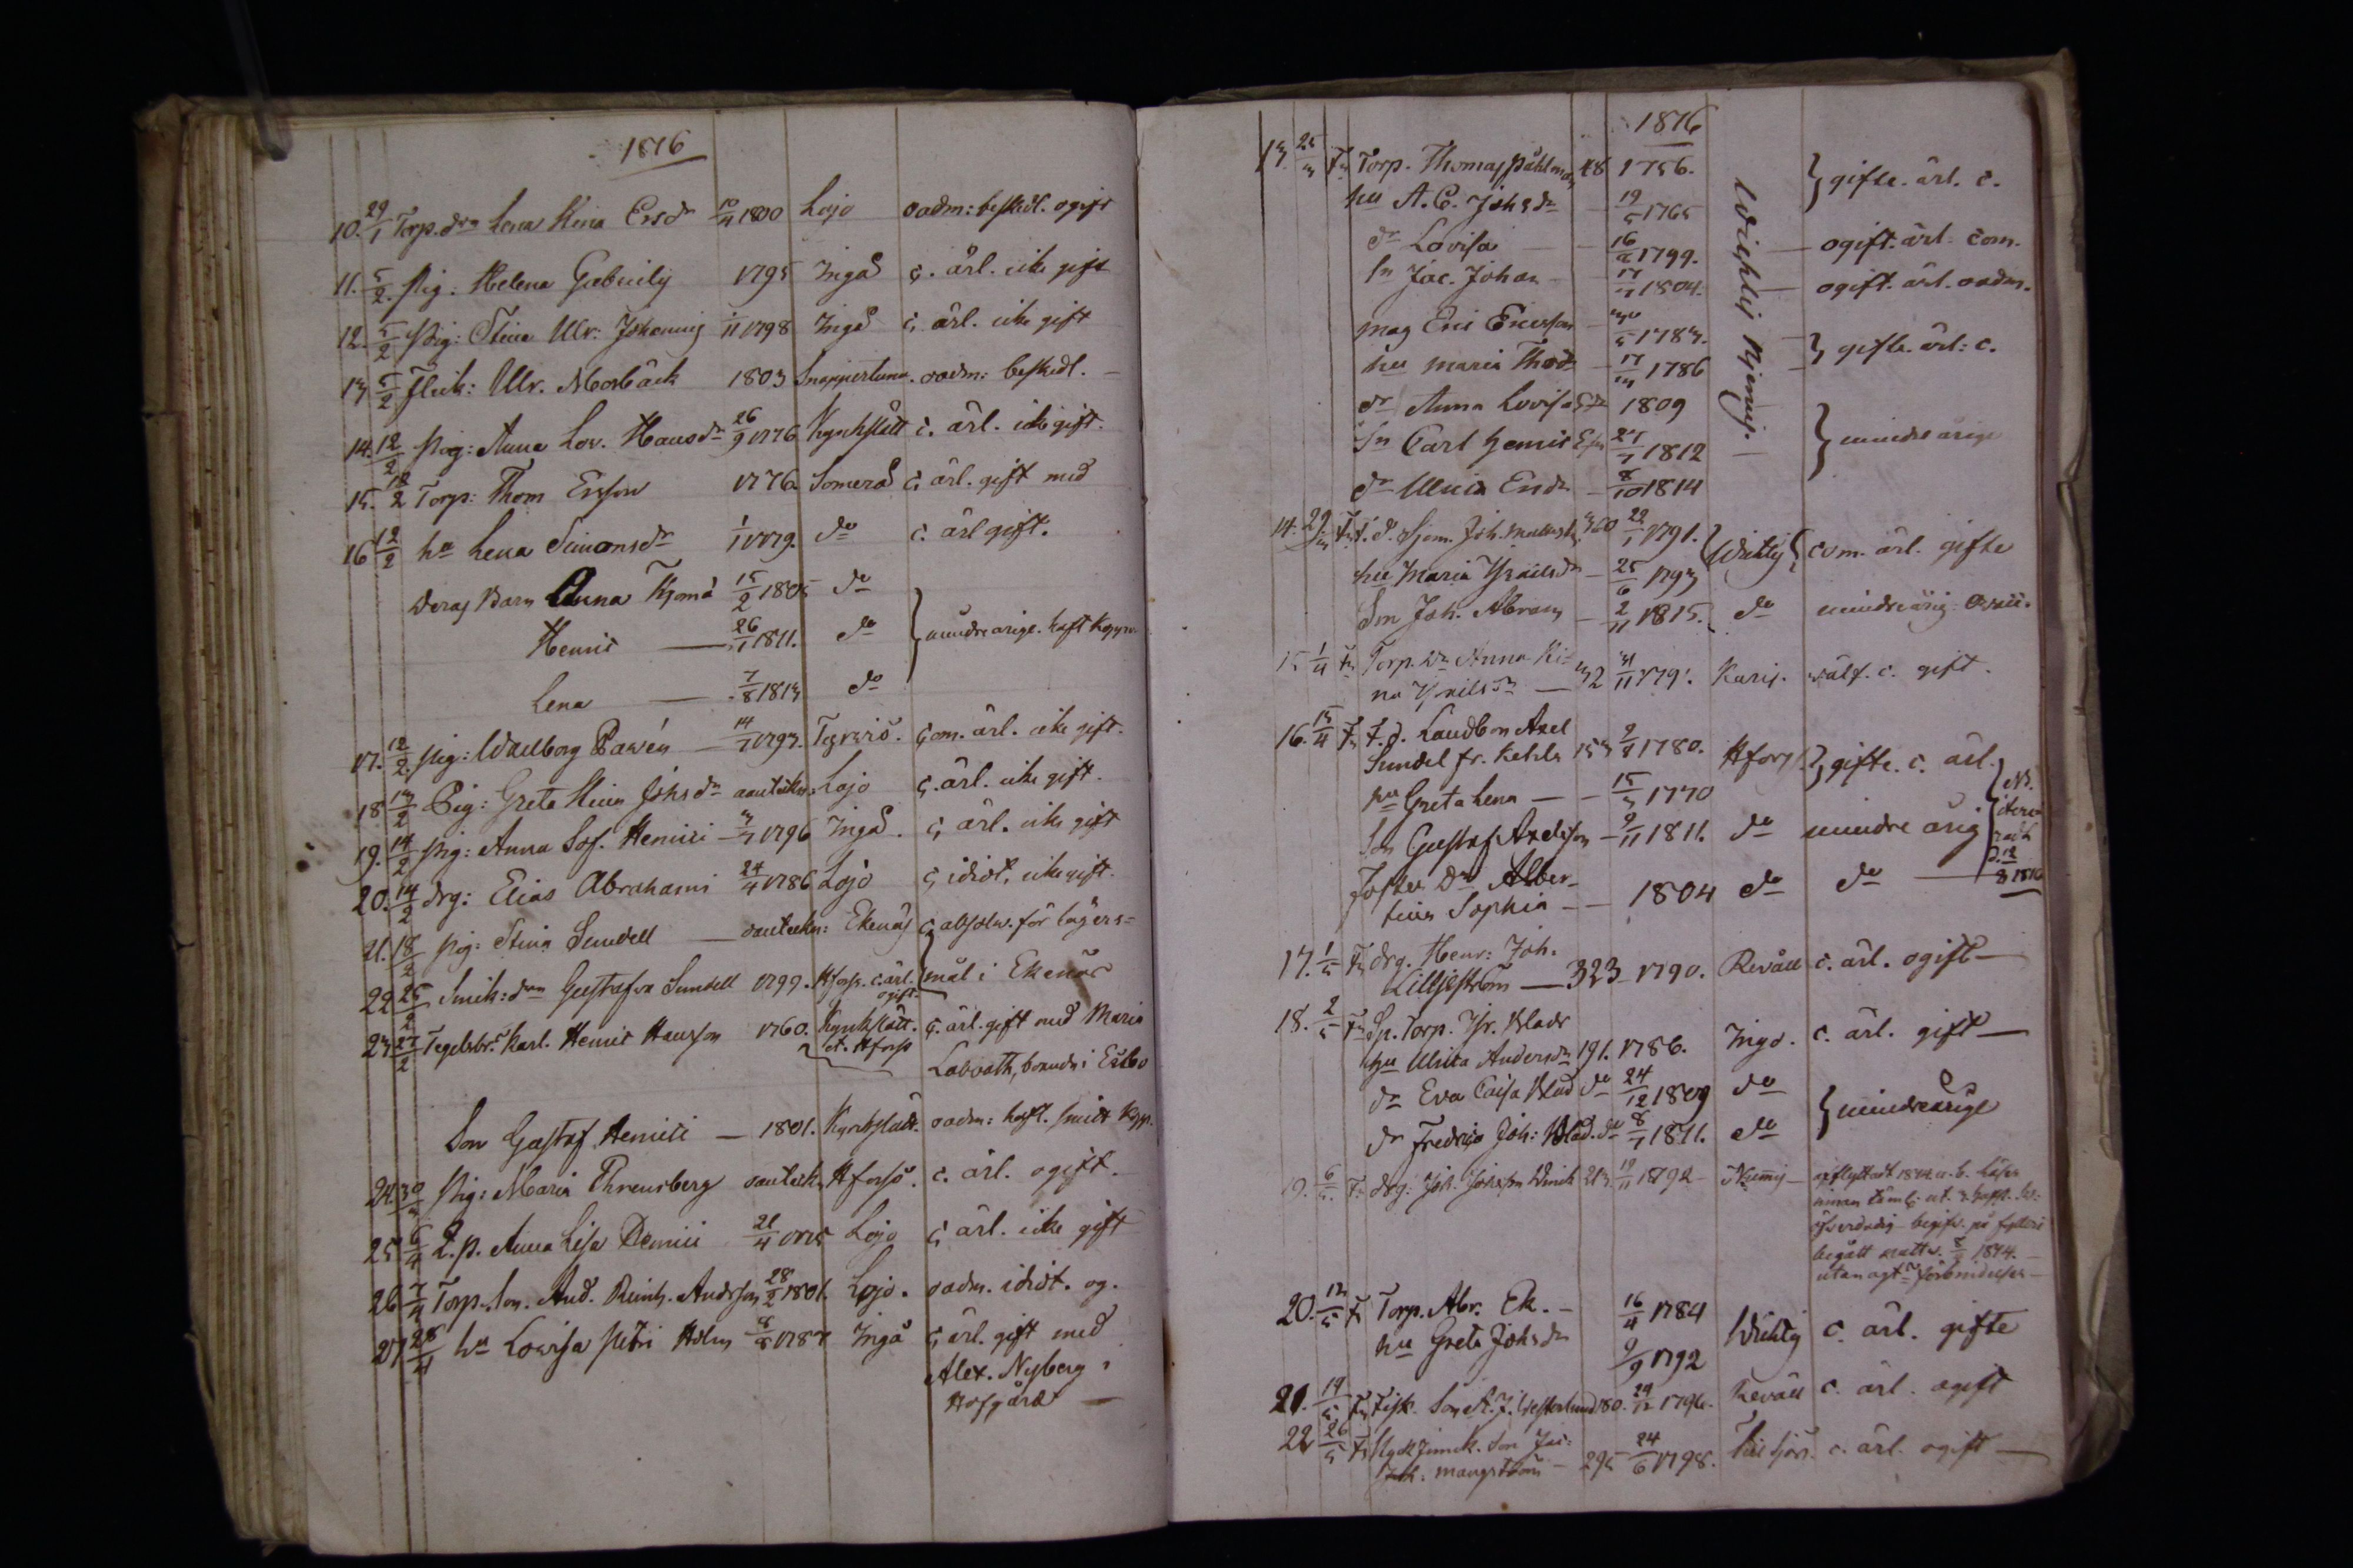 1816
10. 29/1 Torp. drn Lena Stina Ersdr 10/4 1800 Lojo oadm: beskedl. ogift
11. 5/2. Pig: Helena Gabrielis 1795 Ingå c. ärl. icke gift
12. 5/2 Pig: Stina Ulr: Johannis 1/11 1798 Ingå c. ärl. icke gift
13 5/2 flick: Ulr. Mosbäck 1803 Snappertuna. oadm: beskedl. —
14. 12/2 Pig: Anna Lov. Hansdr 26/9 1776 Kyrkslätt c. ärl. icke gift.
15. 12/2 Torp: Thom Ersson 1776 Somerå c. ärl. gift med
16 12/2 hu Lena Simonsdr 1/1 1779. do c. ärl gift.
Deras Barn Anna 15/2 1805 do
Henric — 26/1 1811. do } mindreårige. haft Kopp
Lena — 7/8 1813 do
17. 12/2. Pig: Wallborg Pawén — 14/7 1793. com. ärl. icke gift.
18 13/2 Pig: Greta Stina Johsdr oanteckn: Lojo c. ärl. icke gift.
19. 14/2 Pig: Anna Sof. Henrici — 3/7 1796 Ingå. c. ärl. icke gift
20. 14/2 drg: Elias Abrahami 24/4 1786 Lojo c. idiot, icke gift.
21. 18/2 Pig: Stina Sundell — oanteckn: Ekenäs c. absolv. för lägers=
22 25/2 Smick: drn Gustafva Sundell 1799. Hfors. c. ärl. ogift mål i Ekenäs
23 27/2 Tegelsbr. karl. Henric Hansson 1760. Kyrkslätt. c. ärl. gift med Maria
et. Hfors Labbath, boende i Esbo
Son Gustaf Henrici — 1801. Kyrkslätt. oadm: haft. smitt Kopp.
24. 30/3 Pig: Maria Ehrensberg oanteck. Hfors. c. ärl. ogift.
25 6/4 Q. p. Anna Lisa Henrici 21/4 1775 Lojo c. ärl. icke gift
26 7/4 Torp. son. And. Reinh. Andersson 28/2 1801. Lojo. oadm. idiot. og.
27 28/4 hu Lovisa Petri Holm 8/8 1787 Ingå c. ärl. gift med
Alex. Nyberg i
Hofgård —
1816
13. 25/3 Fr Torp. Thomas Påhlman 48 1756. } gifte. ärl. c.
hu A. C. Johsdr — 19/5 1765
dr Lovisa — 16/2 1799. — ogift. ärl. com.
Sn Jac. Johan — 17/7 1804. — ogift. ärl. oadm.
mag Eric Ericsson — 30/5 1783. } gifte. ärl: c.
hu Maria Thodr — 17/3 1786
Wichtis
dr Anna Lovisa Edr 1809
Sn Carl Henric Esn 27/7 1812 } mindre årige
dr Ulrica Ersdr — 8/10 1814
14. 29/3 Fr f. d. Joh. 360 22/1 1791. } Wichtis { com. ärl. gifte
hu Maria Israilsdr — 25/6 1793
Son Joh. Abram — 2/11 1815. do mindreårig:
15 1/4 Fr Torp. Dr Anna Sti=
na Israilsdr — 32 11/11 1779. Karis. c. gift.
16. 15/4 Fr f. d. Landbon Axel
Sundel fr. 153 2/8 1780. Hfors } gifte. c. ärl.
hu Greta Lena — — 15/3 1770
Son Gustaf Axelsson — 9/11 1811. do mindre årig
Foster Dr Alber=
tina Sophia — — 1804 do do — 12/8 1816
17. 1/5 Fr drg. Henr: Joh.
Lilljeström — 323 1790. Revåll c. ärl. ogift —
18. 2/5 Fr Sp. Torp. Isr. Blad
hu Ulrica Andersdr 191. 1786. Ingå. c. ärl. gift —
dr Eva Caisa Blad do 24/12 1809 do
dr Fredrica Joh: Blad. do 8/7 1811. do } mindreårige
19. 6/5. Fr drg: Joh. Johansson Winck 213 19/11 1792 — Kumnis — afflyttadt 1814 läser
innan
begifv. på
begått nattv. 8/ 1814. —
utan ägt. förbindelser —
20. 12/5 Fr Torp. Abr. Ek. — 16/4 1784 Wichtis c. ärl. gifte
hu Greta Johsdr 9/9 1792
21. 19/5 Fr Fisk. Son A. J. Westerlund 180. 24/12 1796. Revåll c. ärl. ogift
22 26/5 Fr Styckjunck. Son Jac:
Joh. Mangström — 295 24/6 1798. c. ärl. ogift —